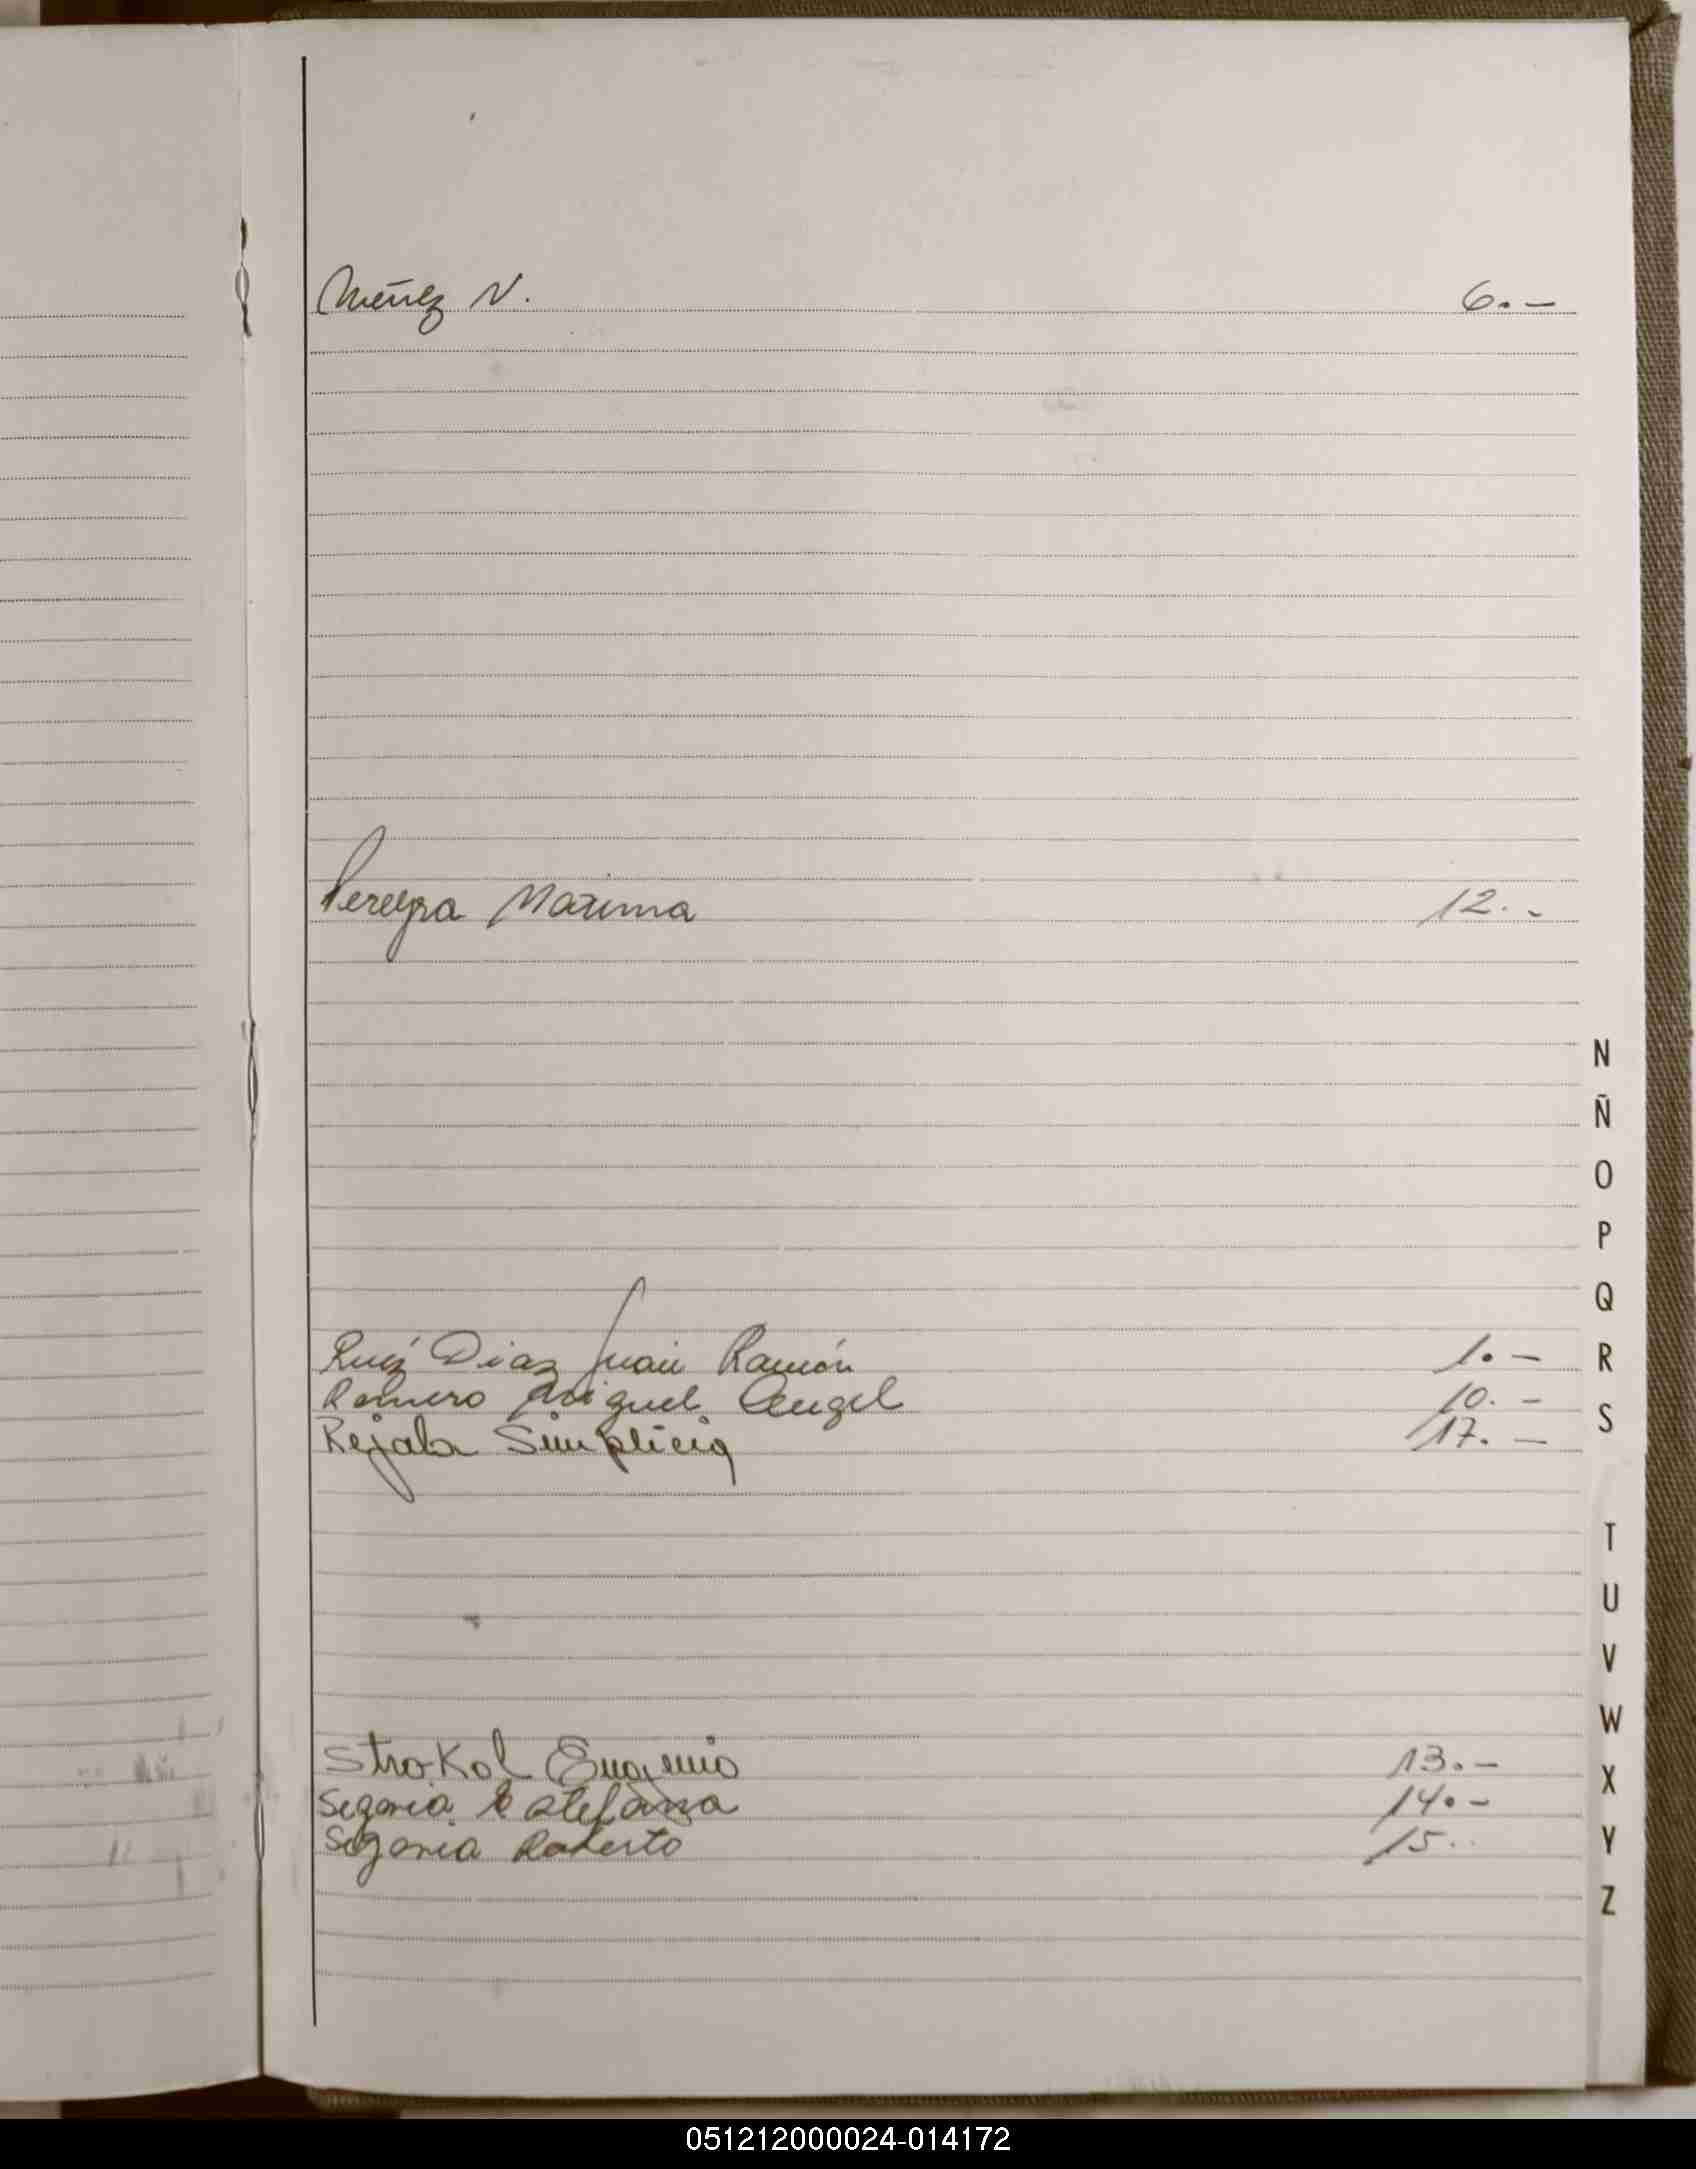 Núñez N. 6.-
Pereyra Maxima 12.-
N
Ñ
O
P
Q
Ruíz Diaz Juan Ramón 1.-
R
Romero Miguel Angel 10.-
S
Rejala Simplicia 17.-
T
U
V
W
Strokol Eugenio 13.-
X
Segovia Estefana 14.-
Segovia Roberto 15..
Y
Z
051212000024-014172